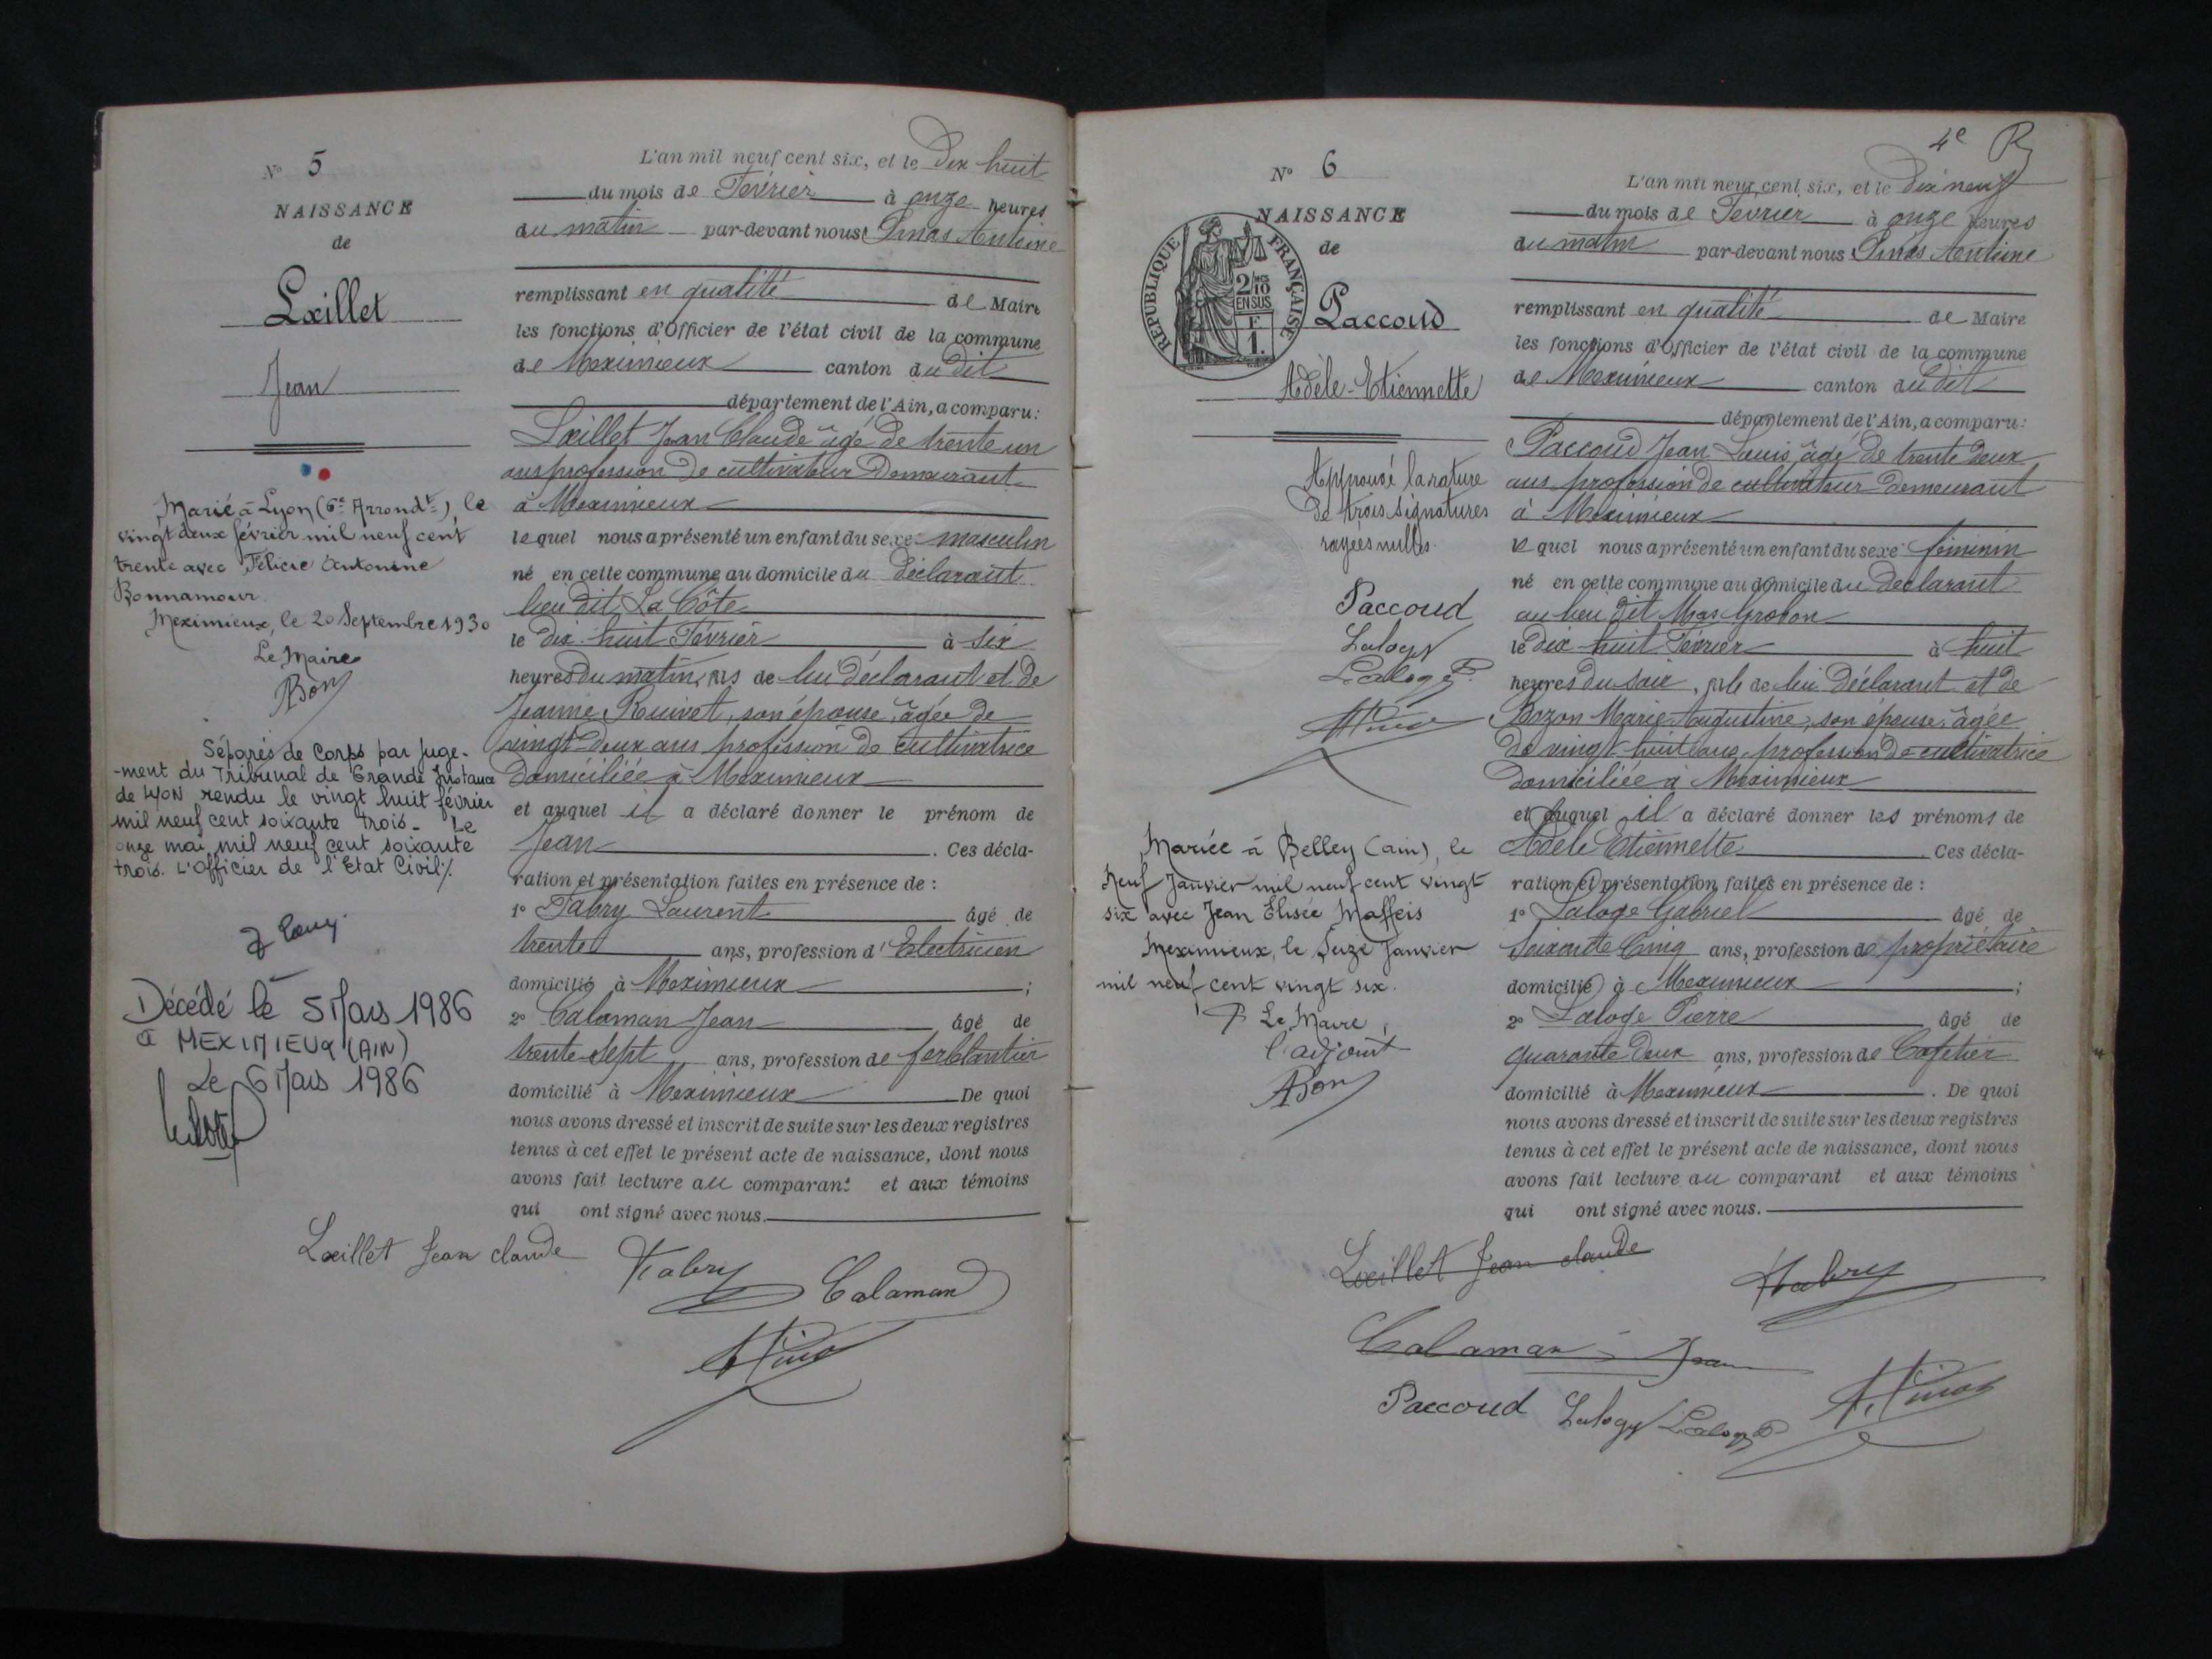 N° 5
NAISSANCE
de
Lœillet
Jean
Marié à Lyon (6e Arrondt), le
vingt deux février mil neuf cent
trente avec Félicie Antonine
Bonnamour
Meximieux, le 20 Septembre 1930
Le Maire
Bon
Séparés de Corps par juge-
-ment du Tribunal de Grande Instance
de LYON rendu le vingt huit février
mil neuf cent soixante trois - Le
onze mai mil neuf cent soixante
trois. L'Officier de l'Etat Civil /.
Décédé le 5 Mars 1986
à MEXIMIEUX (AIN)
Le 6 Mars 1986
L'an mil neuf cent six, et le Dix huit
du mois de Février à onze heures
du matin par-devant nous Pinas Antoine
remplissant en qualité de Maire
les fonctions d'Officier de l'état civil de la commune
de Meximieux canton du dit
département de l'Ain, a comparu:
Lœillet Jean Claude âgé de trente un
ans profession de cultivateur demeurant
à Meximieux
lequel nous a présenté un enfant du sexe masculin
né en cette commune au domicile du déclarant
lieu dit La Côte
le dix-huit Février à six
heures du matin, fils de lui déclarant et de
Jeanne Ruivet, son épouse, âgée de
vingt-deux ans profession de cultivatrice
domiciliée à Meximieux
et auquel il a déclaré donner le prénom de
Jean . Ces décla-
ration et présentation faites en présence de :
1° Fabry Laurent âgé de
trente ans, profession d'Electricien
domicilié à Meximieux ;
2° Calaman Jean âgé de
trente-sept ans, profession de ferblantier
domicilié à Meximieux De quoi
nous avons dressé et inscrit de suite sur les deux registres
tenus à cet effet le présent acte de naissance, dont nous
avons fait lecture au comparant et aux témoins
qui ont signé avec nous.
Lœillet Jean claude Fabry Calaman
4e
N° 6
NAISSANCE
de
REPUBLIQUE FRANÇAISE
2/10 EN SUS
F 1.
Paccoud
Adèle-Etiennette
Approuvé la rature
de trois signatures
rayées nulles.
Paccoud
Laloge
Laloge P.
Mariée à Belley (ain), le
Neuf Janvier mil neuf cent vingt
six avec Jean Elisée Maffeis
Meximieux, le Seize Janvier
mil neuf cent vingt six.
P Le Maire,
l'adjoint
Bon
L'an mil neuf cent six, et le dix neuf
du mois de Février à onze heures
du matin par-devant nous Pinas Antoine
remplissant en qualité de Maire
les fonctions d'Officier de l'état civil de la commune
de Meximieux canton du dit
département de l'Ain, a comparu:
Paccoud Jean Louis, âgé de trente deux
ans profession de cultivateur demeurant
à Meximieux
lequel nous a présenté un enfant du sexe féminin
né en cette commune au domicile du déclarant
au lieu dit Mas Grobon
le dix-huit Février à huit
heures du soir, fille de lui déclarant et de
Bozon Marie Augustine, son épouse, âgée
de vingt-huit ans, profession de cultivatrice
domiciliée à Meximieux
et auquel il a déclaré donner les prénoms de
Adèle Etiennette . Ces décla-
ration et présentation faites en présence de :
1° Laloge Gabriel âgé de
Soixante Cinq ans, profession de propriétaire
domicilié à Meximieux ;
2° Laloge Pierre âgé de
quarante deux ans, profession de Cafetier
domicilié à Meximieux . De quoi
nous avons dressé et inscrit de suite sur les deux registres
tenus à cet effet le présent acte de naissance, dont nous
avons fait lecture au comparant et aux témoins
qui ont signé avec nous.
Lœillet Jean claude Fabry
Calaman Jean
Paccoud Laloge Laloge P